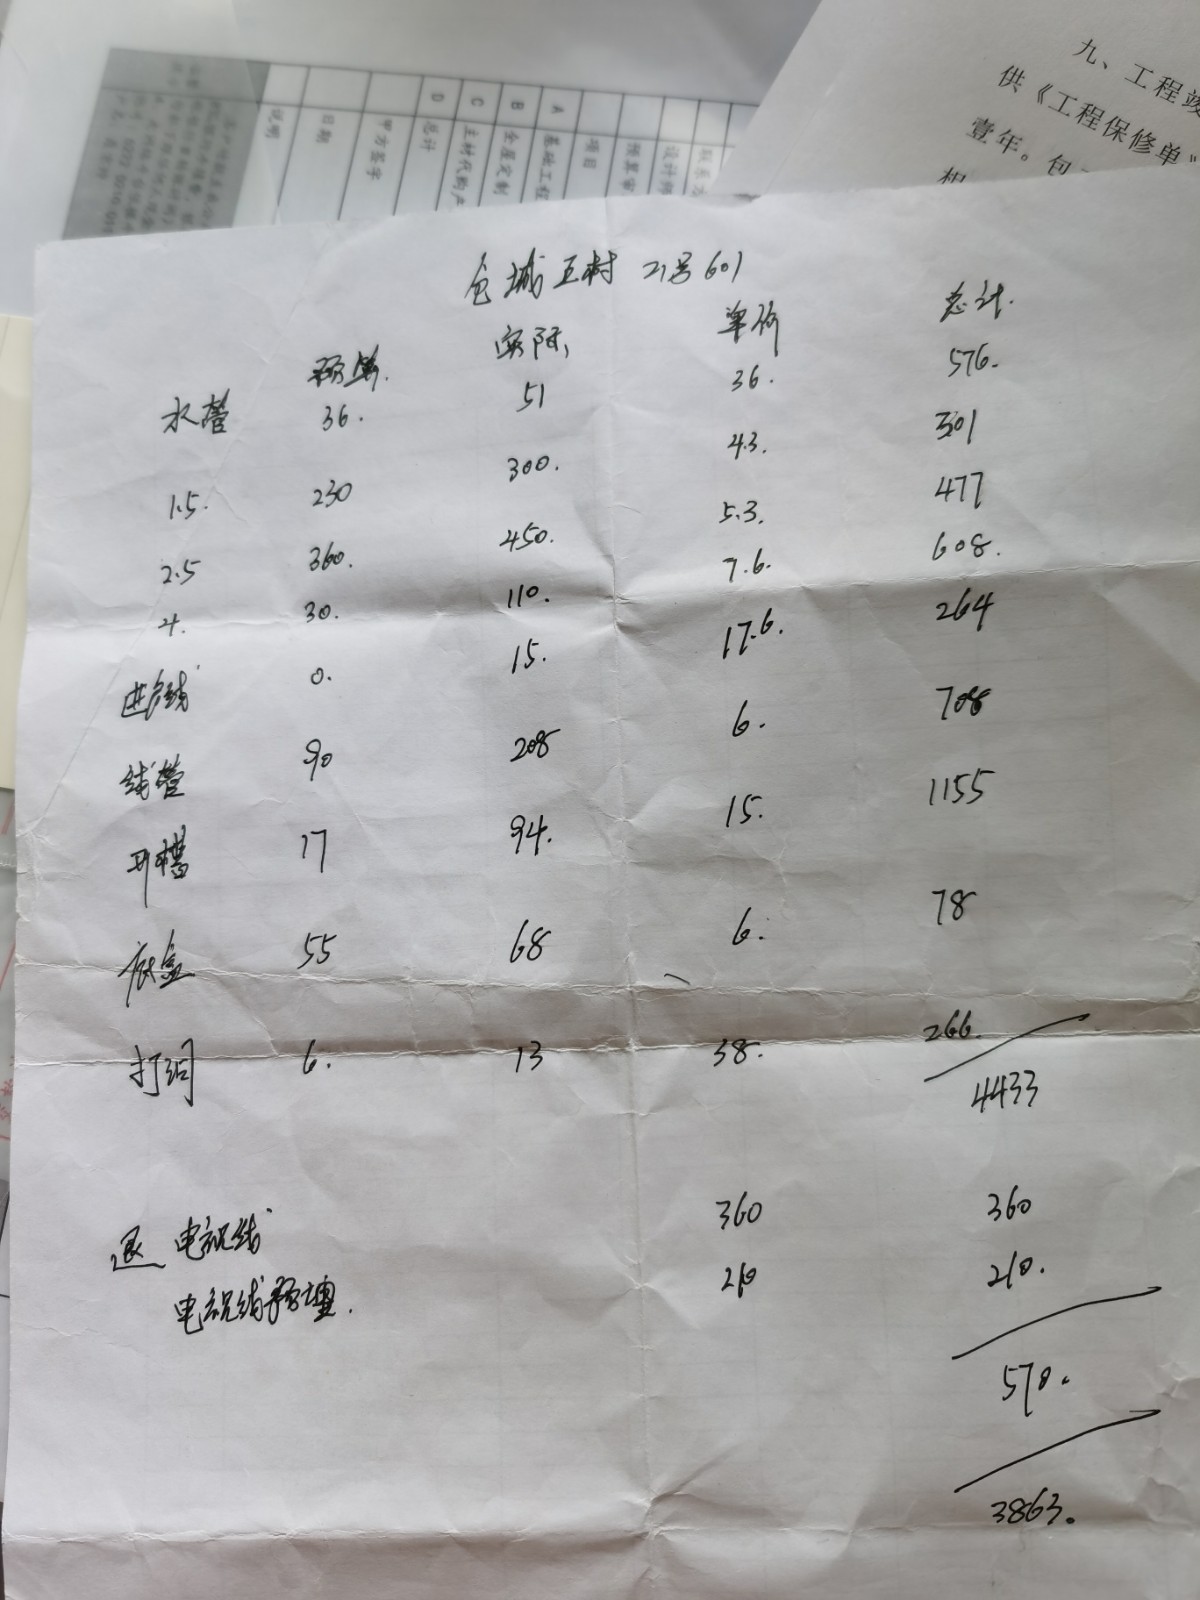 九、工程竣
供《工程保修单》
壹年。包
D C B A
说明 日期 甲方签字 总计 主材代购产 全屋定制 基础工程 项目 预算审 设计师 联系方
仓城五村 21号601
预算. 实际, 单价 总计.
水管 36. 51 36. 576.
1.5. 230 300. 4.3. 301
2.5 360. 450. 5.3. 477
4. 30. 110. 7.6. 608.
进户线 0. 15. 17.6. 264
线管 90 208 6. 708
开槽 17 94. 15. 1155
底盒 55 68 6. 78
打洞 6. 13 38. 266.
4433
退 电视线 360 360
电视线预埋. 210 210.
570.
3863.